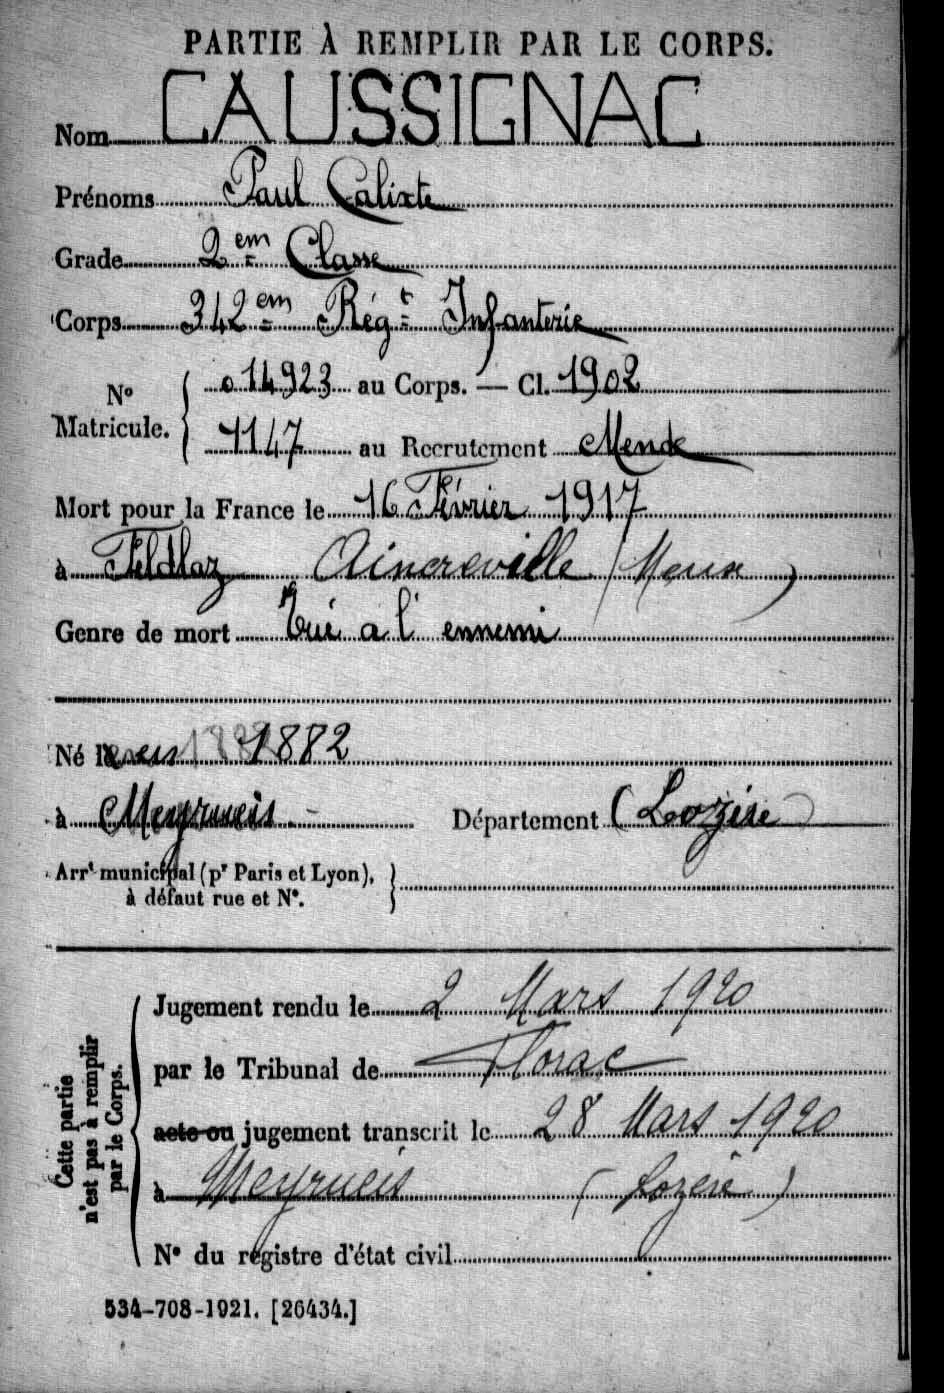 PARTIE À REMPLIR PAR LE CORPS.
Nom CAUSSIGNAC
Prénoms Paul Calixte
Grade 2em Classe
Corps 342em Régt Infanterie
No Matricule. { 014923 au Corps. — Cl. 1902
1147 au Recrutement Mende
Mort pour la France le 16 Février 1917
à Feldlaz Aincreville (Meuse)
Genre de mort Tué a l'ennemi
Né le en 1882 1882
à Meyrueis - Département (Lozère)
Arrt municipal (pr Paris et Lyon), à défaut rue et No. }
Cette partie n'est pas à remplir par le Corps.
Jugement rendu le 2 Mars 1920
par le Tribunal de Florac
acte ou jugement transcrit le 28 Mars 1920
à Meyrueis (Lozère)
No du registre d'état civil
534-708-1921. [26434.]